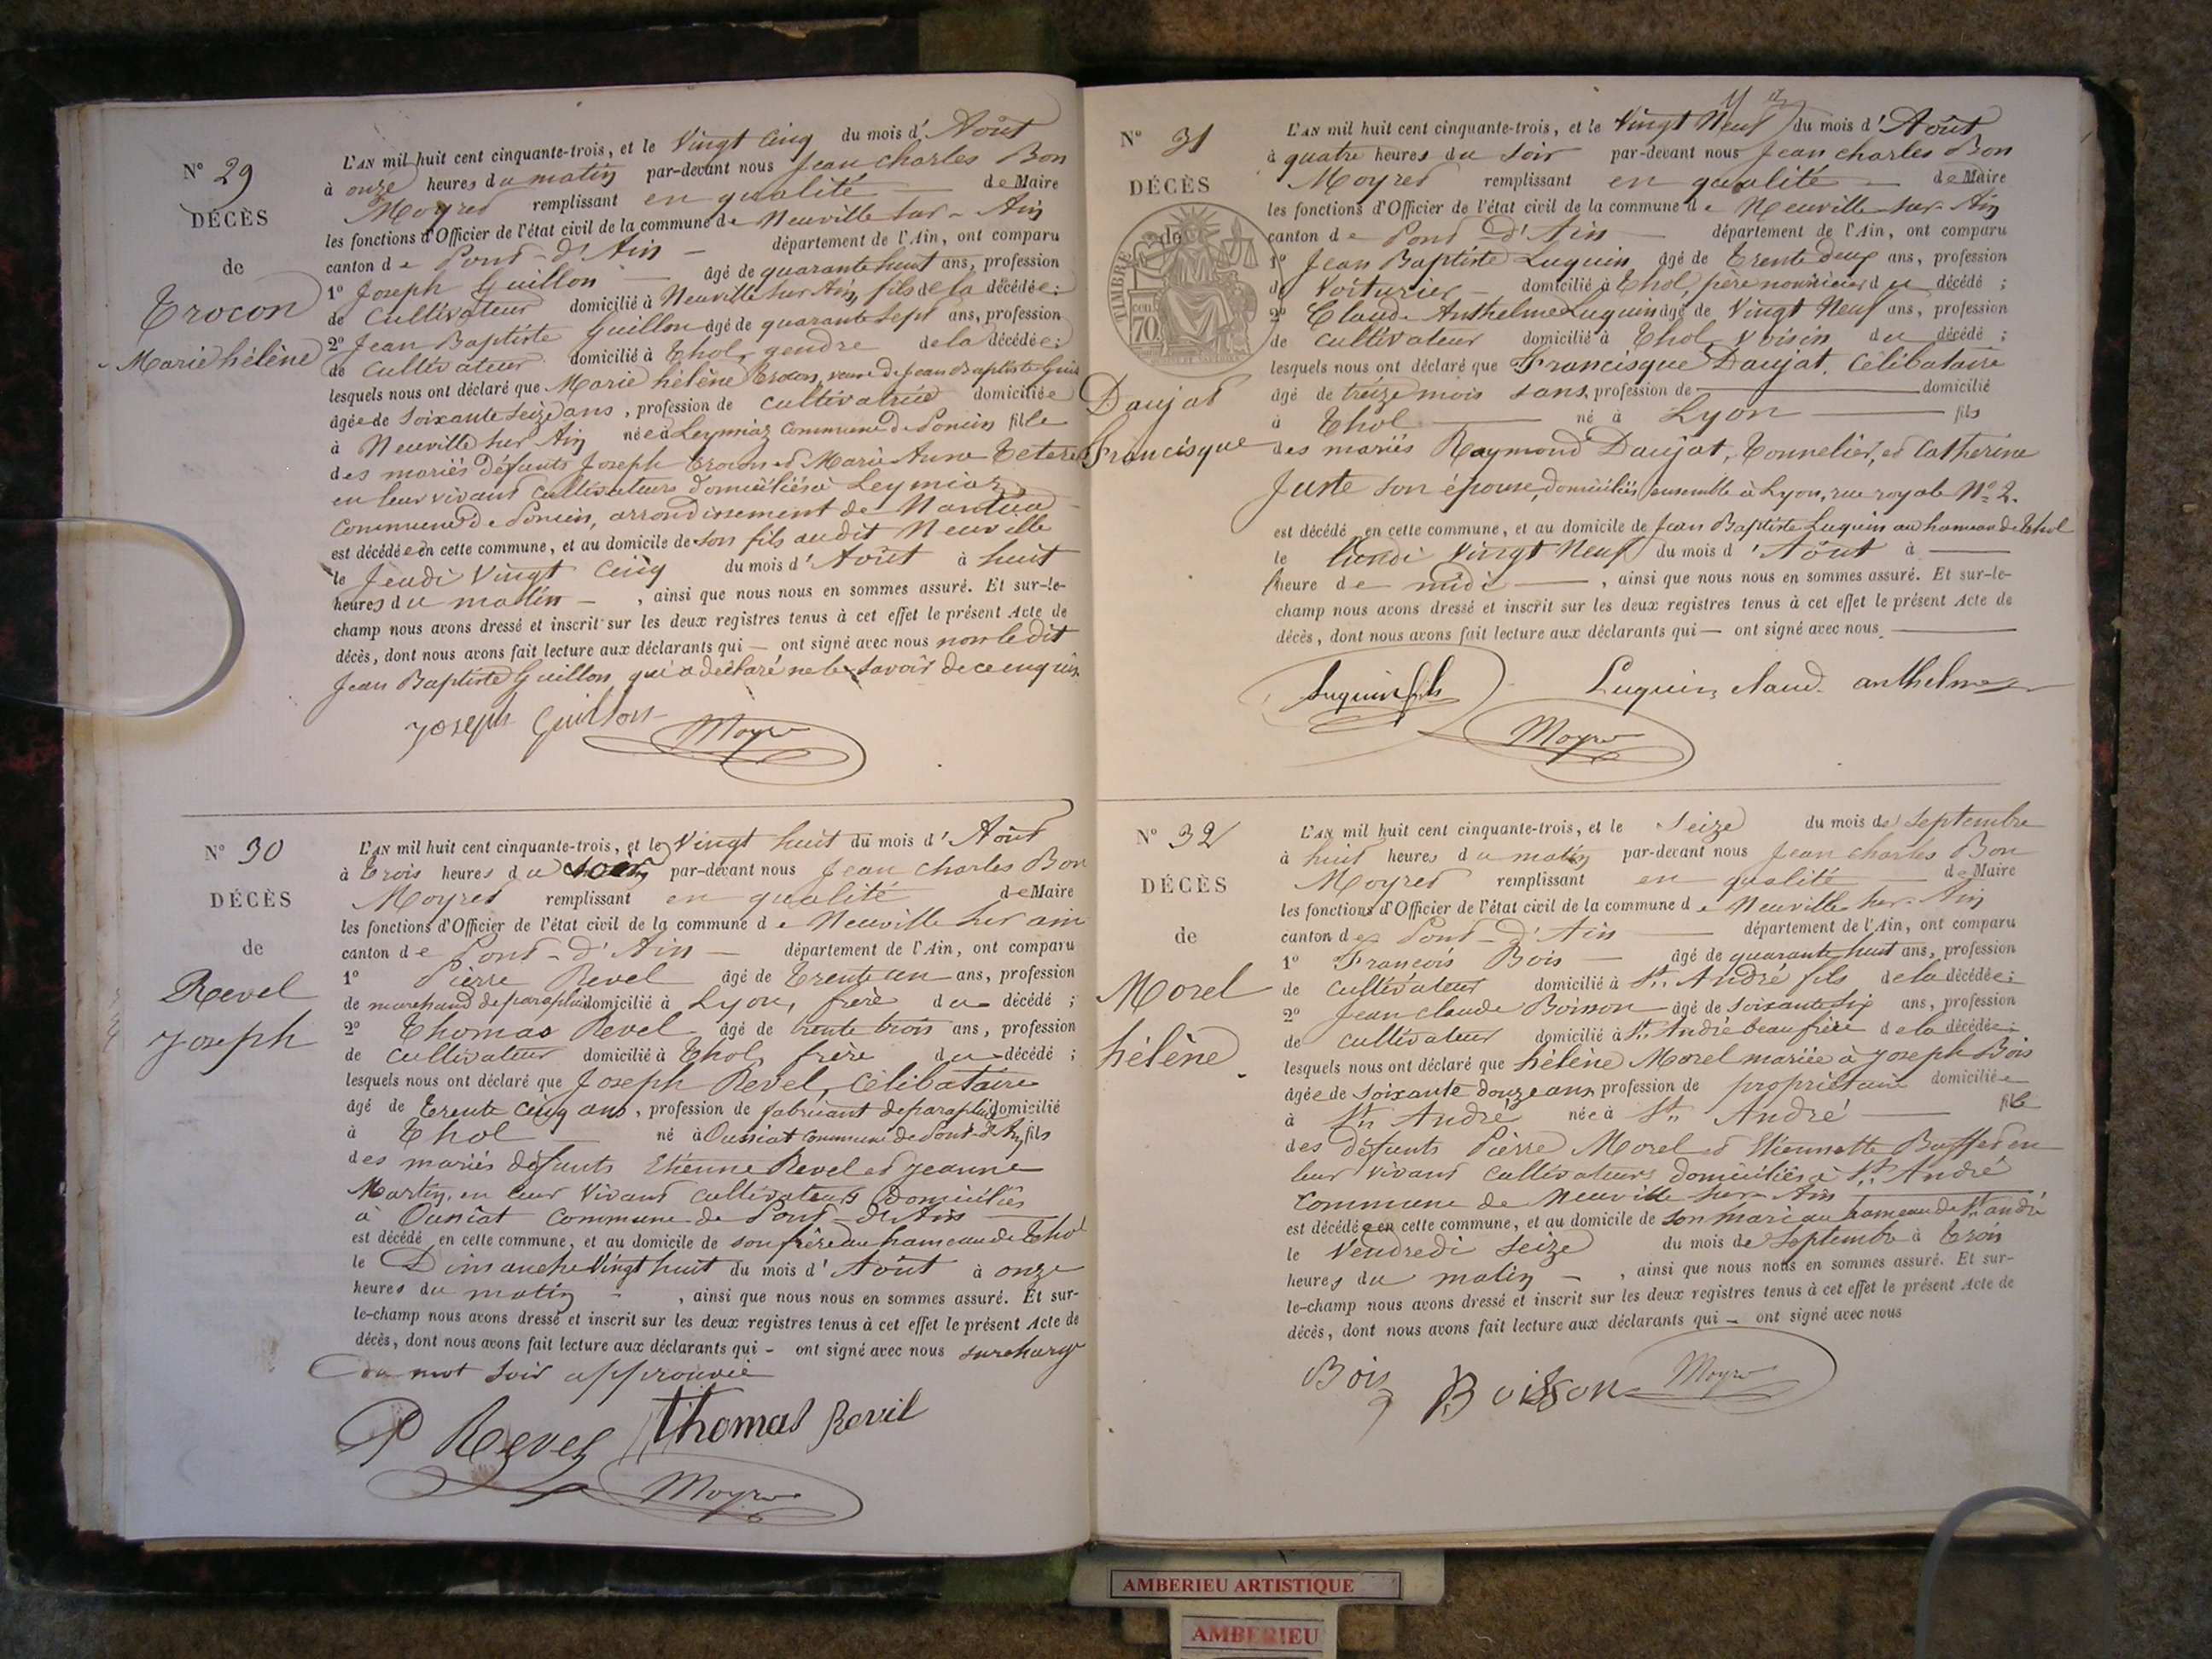 N° 29
DÉCÈS
de
Trocon
Marie hélène
L'AN mil huit cent cinquante-trois, et le Vingt Cinq du mois d'Août
à onze heures du matin par-devant nous Jean Charles Bon
Moyret remplissant en qualité de Maire
les fonctions d'Officier de l'état civil de la commune de Neuville sur-Ain
canton de Pont-d'Ain département de l'Ain, ont comparu
1° Joseph Guillon âgé de quarante huit ans, profession
de Cultivateur domicilié à Neuville sur Ain, fils de la décédée;
2° Jean Baptiste Guillon âgé de quarante sept ans, profession
de cultivateur domicilié à Thol, gendre de la décédée;
lesquels nous ont déclaré que Marie hélène Trocon, veuve de Jean Baptiste
âgée de soixante seize ans, profession de cultivatrice domiciliée
à Neuville sur Ain née à Leymiaz commune de Poncin fille
des mariés défunts Joseph Trocon et Marie Anne
en leur vivant cultivateurs domiciliés à Leymiaz,
Commune de Poncin, arrondissement de Nantua
est décédée en cette commune, et au domicile de son fils audit Neuville
le Jeudi Vingt Cinq du mois d'Août à huit
heures du matin, ainsi que nous nous en sommes assuré. Et sur-le-
champ nous avons dressé et inscrit sur les deux registres tenus à cet effet le présent Acte de
décès, dont nous avons fait lecture aux déclarants qui — ont signé avec nous non le dit
Jean Baptiste Guillon, qui a déclaré ne le savoir de ce enquis.
Joseph Guillon Moyret
N° 30
DÉCÈS
de
Revel
Joseph
L'AN mil huit cent cinquante-trois, et le Vingt huit du mois d'Août
à trois heures du soir par-devant nous Jean Charles Bon
Moyret remplissant en qualité de Maire
les fonctions d'Officier de l'état civil de la commune de Neuville sur ain
canton de Pont-d'Ain — département de l'Ain, ont comparu
1° Pierre Revel âgé de trente un ans, profession
de marchand de parapluie domicilié à Lyon, frère du décédé;
2° Thomas Revel âgé de trente trois ans, profession
de cultivateur domicilié à Thol, frère du décédé;
lesquels nous ont déclaré que Joseph Revel, Célibataire
âgé de trente cinq ans, profession de fabricant de parapluie domicilié
à Thol né à Oussiat commune de Pont-d'Ain, fils
des mariés défunts Etienne Revel et Jeanne
Martin, en leur vivant cultivateurs domiciliés
à Oussiat Commune de Pont-d'Ain
est décédé en cette commune, et au domicile de son frère au hameau de Thol
le Dimanche Vingt huit du mois d'Août à onze
heures du matin, ainsi que nous nous en sommes assuré. Et sur-
le-champ nous avons dressé et inscrit sur les deux registres tenus à cet effet le présent Acte de
décès, dont nous avons fait lecture aux déclarants qui — ont signé avec nous surcharge
du mot soir approuvée
P Revel Thomas Revil
Moyret
N° 31
DÉCÈS
de
TIMBRE
70
Daujat
Francisque
L'AN mil huit cent cinquante-trois, et le Vingt Neuf du mois d'Août
à quatre heures du soir par-devant nous Jean charles Bon
Moyret remplissant en qualité — de Maire
les fonctions d'Officier de l'état civil de la commune de Neuville sur-Ain
canton de Pont-d'Ain département de l'Ain, ont comparu
1° Jean Baptiste Luquin âgé de trente deux ans, profession
de Voiturier — domicilié à Thol, père nourricier du décédé;
2° Claude Anthelme Luquin âgé de Vingt Neuf ans, profession
de cultivateur domicilié à Thol, voisin du décédé;
lesquels nous ont déclaré que Francisque Daujat, Célibataire
âgé de treize mois sans profession de — domicilié
à Thol né à Lyon fils
des mariés Raymond Daujat, Tonnelier, et Catherine
Juste son épouse, domiciliés ensemble à Lyon, rue royale N° 2.
est décédé en cette commune, et au domicile de Jean Baptiste Luquin au hameau de Thol
le Lundi Vingt Neuf du mois d'Août à —
heure de midi —, ainsi que nous nous en sommes assuré. Et sur-le-
champ nous avons dressé et inscrit sur les deux registres tenus à cet effet le présent Acte de
décès, dont nous avons fait lecture aux déclarants qui — ont signé avec nous
Luquin fils Luquin claud. anthelme
Moyret
N° 32
DÉCÈS
de
Morel
hélène
L'AN mil huit cent cinquante-trois, et le Seize du mois de Septembre
à huit heures du matin par-devant nous Jean Charles Bon
Moyret remplissant en qualité — de Maire
les fonctions d'Officier de l'état civil de la commune de Neuville sur-Ain
canton de Pont-d'Ain département de l'Ain, ont comparu
1° François Bois — âgé de quarante huit ans, profession
de Cultivateur domicilié à St. André fils de la décédée;
2° Jean claude Boisson âgé de soixante six ans, profession
de Cultivateur domicilié à St. André beau frère de la décédée;
lesquels nous ont déclaré que hélène Morel mariée à Joseph Bois
âgée de soixante douze ans profession de propriétaire domiciliée
à St. André née à St. André fille
des défunts Pierre Morel et Etiennette Buffet en
leur vivant cultivateurs domiciliés à St. André
Commune de Neuville sur-Ain
est décédée en cette commune, et au domicile de son mari au hameau de St. andré
le Vendredi seize du mois de Septembre à trois
heures du matin —, ainsi que nous nous en sommes assuré. Et sur-
le-champ nous avons dressé et inscrit sur les deux registres tenus à cet effet le présent Acte de
décès, dont nous avons fait lecture aux déclarants qui — ont signé avec nous
Bois Boisson Moyret
AMBERIEU ARTISTIQUE
AMBERIEU